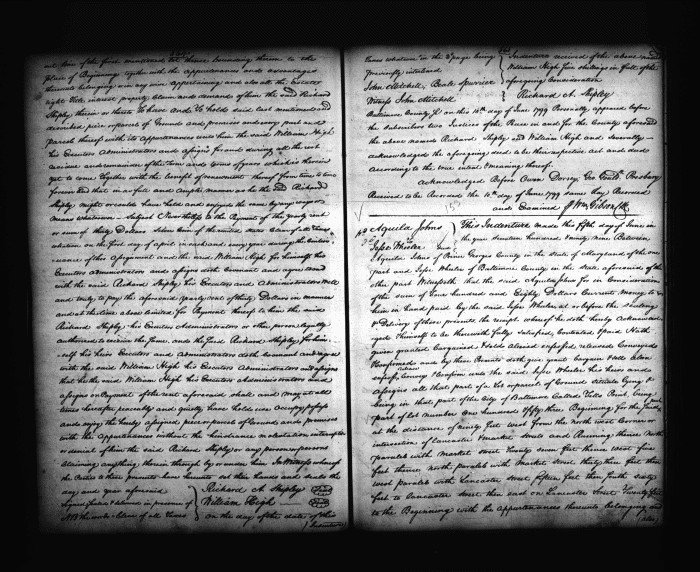 out line of the said ground and thence bounding thereon to the
place of Beginning together with the appurtenances and advantages
thereunto belonging or in any wise appertaining and also all the Estate
right Title interest property claim and demand of him the said Richard
Shipley therein or thereto To have and To hold said last mentioned and
described piece or parcel of Ground and premises and every part and
parcel thereof with its appurtenances unto him the said William High
his Executors Administrators and assigns for and during all the rest
residue and remainder of the term and years of years which is therein
yet to come Together with the benefit of renewment thereof from time to time
forever and that in as full and ample manner as he the said Richard
Shipley might or could have held and enjoyed the same by any ways or
means whatsoever Subject Nevertheless to the Payment of the yearly rent
or sum of thirty Dollars
on the first day of april in each and every year during the Continu
-ance of this assignment and the said William High for himself his
Executors administrators and assigns doth Covenant and agree to and
with the said Richard Shipley his Executors and Administrators Well
and truly to pay the aforesaid yearly rent of thirty Dollars in manner
and at the time above limited for Payment thereof to him the said
Richard Shipley his Executors Administrators or other person legally
authorized to receive the same and the said Richard Shipley for him
-self his heirs Executors and administrators doth covenant and agree
with the said William High his Executors Administrators and assigns
that he the said William High his Executors Administrators and
assigns on Payment of the rent aforesaid shall and may at all
times hereafter peaceably and quietly have hold use Occupy possess
and enjoy the hereby assigned piece or parcel of Ground and premises
with the appurtenances without the hindrance molestation interruption
or denial of him the said Richard Shipley or any person or persons
claiming anything therein through by or under him In Witness whereof
the Parties to these presents have hereunto set their hands and seals the
day and year aforesaid Richard A. Shipley
Signed Sealed & delivered in presence of William High
on the day of the date of this
Indenture
times whatsoever in the 3d page being
previously interlined
John Mitchell, Beale Spurrier
Witness John Mitchell
Indenture received of the above named
William High five shillings in full of the
aforegoing Consideration
Richard A. Shipley
Baltimore County Sc on this 15th day of June 1799 Personally appeared before
the subscribers two Justices of the Peace in and for the County aforesaid
the above named Richard Shipley and William High and severally
acknowledged the aforegoing deed to be their respective act and deed
according to the true intent & meaning thereof
acknowledged Before Owen Dorsey, Geo Goulds Presbury
Received to be Recorded the 15th day of June 1799 same day Recorded
and Examined Wm Gibson Clk
Aquila Johns
Jesse Wheeler
This Indenture made this fifth day of June in
the year seventeen hundred Ninety Nine Between
Aquila Johns of Prince Georges County in the State of Maryland of the one
part and Jesse Wheeler of Baltimore County in the State aforesaid of the
other part Witnesseth that the said Aquila Johns for in Consideration
of the sum of four hundred and Eighty Dollars Current money to
him in hand paid by the said Jesse Wheeler at or before the sealing
& Delivery of these presents, the receipt whereof he doth hereby acknowledge
& himself to be therewith fully satisfied, Contented & paid Hath
given granted Bargained & Sold aliened enfeoffed released Conveyed
& Confirmed and by these Presents doth give grant Bargain & sell alien
enfeoff, Convey & Confirm unto the said Jesse Wheeler his heirs and
assigns all that part of a Lot or parcel of Ground situate lying &
being in that part of the City of Baltimore Called Fells Point, being
part of Lot Number One hundred & fifty three Beginning for the said part
at the distance of ninety feet west from the north west corner or
intersection of Lancaster & market Streets and Running thence North
parallel with Market Street Twenty seven feet thence west five
feet thence north parallel with Market Street thirty three feet then
west parallel with Lancaster Street fifteen feet then South sixty
feet to Lancaster Street then east on Lancaster Street Twenty feet
to the Beginning with the appurtenances thereunto belonging and